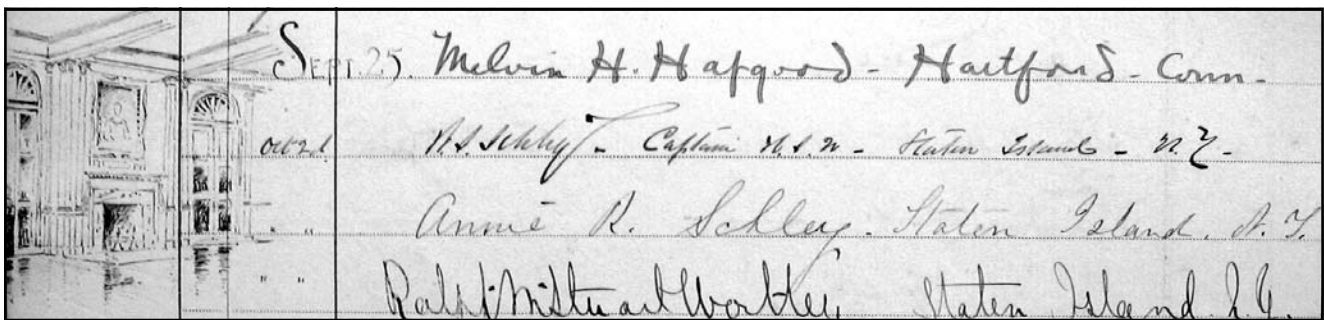 Sept. 25. Melvin H. Hapgood - Hartford - Conn -
Oct 2d. W. S. Schley - Captain U.S.N - Staten Island - N.Y. -
" " Annie R. Schley. Staten Island. N.Y.
" " Ralph M. Stuart Wortley, Staten Island N.Y.